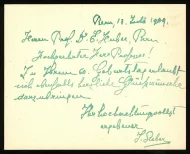 Bern, 13. Juli 1909.
Herrn Prof. Dr. E. Huber, Bern
Hochgeehrter Herr Professor!
Zu Ihrem 60. Geburtstag erlaubt
sich ebenfalls herzliche Glückwünsche
darzubringen
Ihr hochachtungsvollst
ergebener